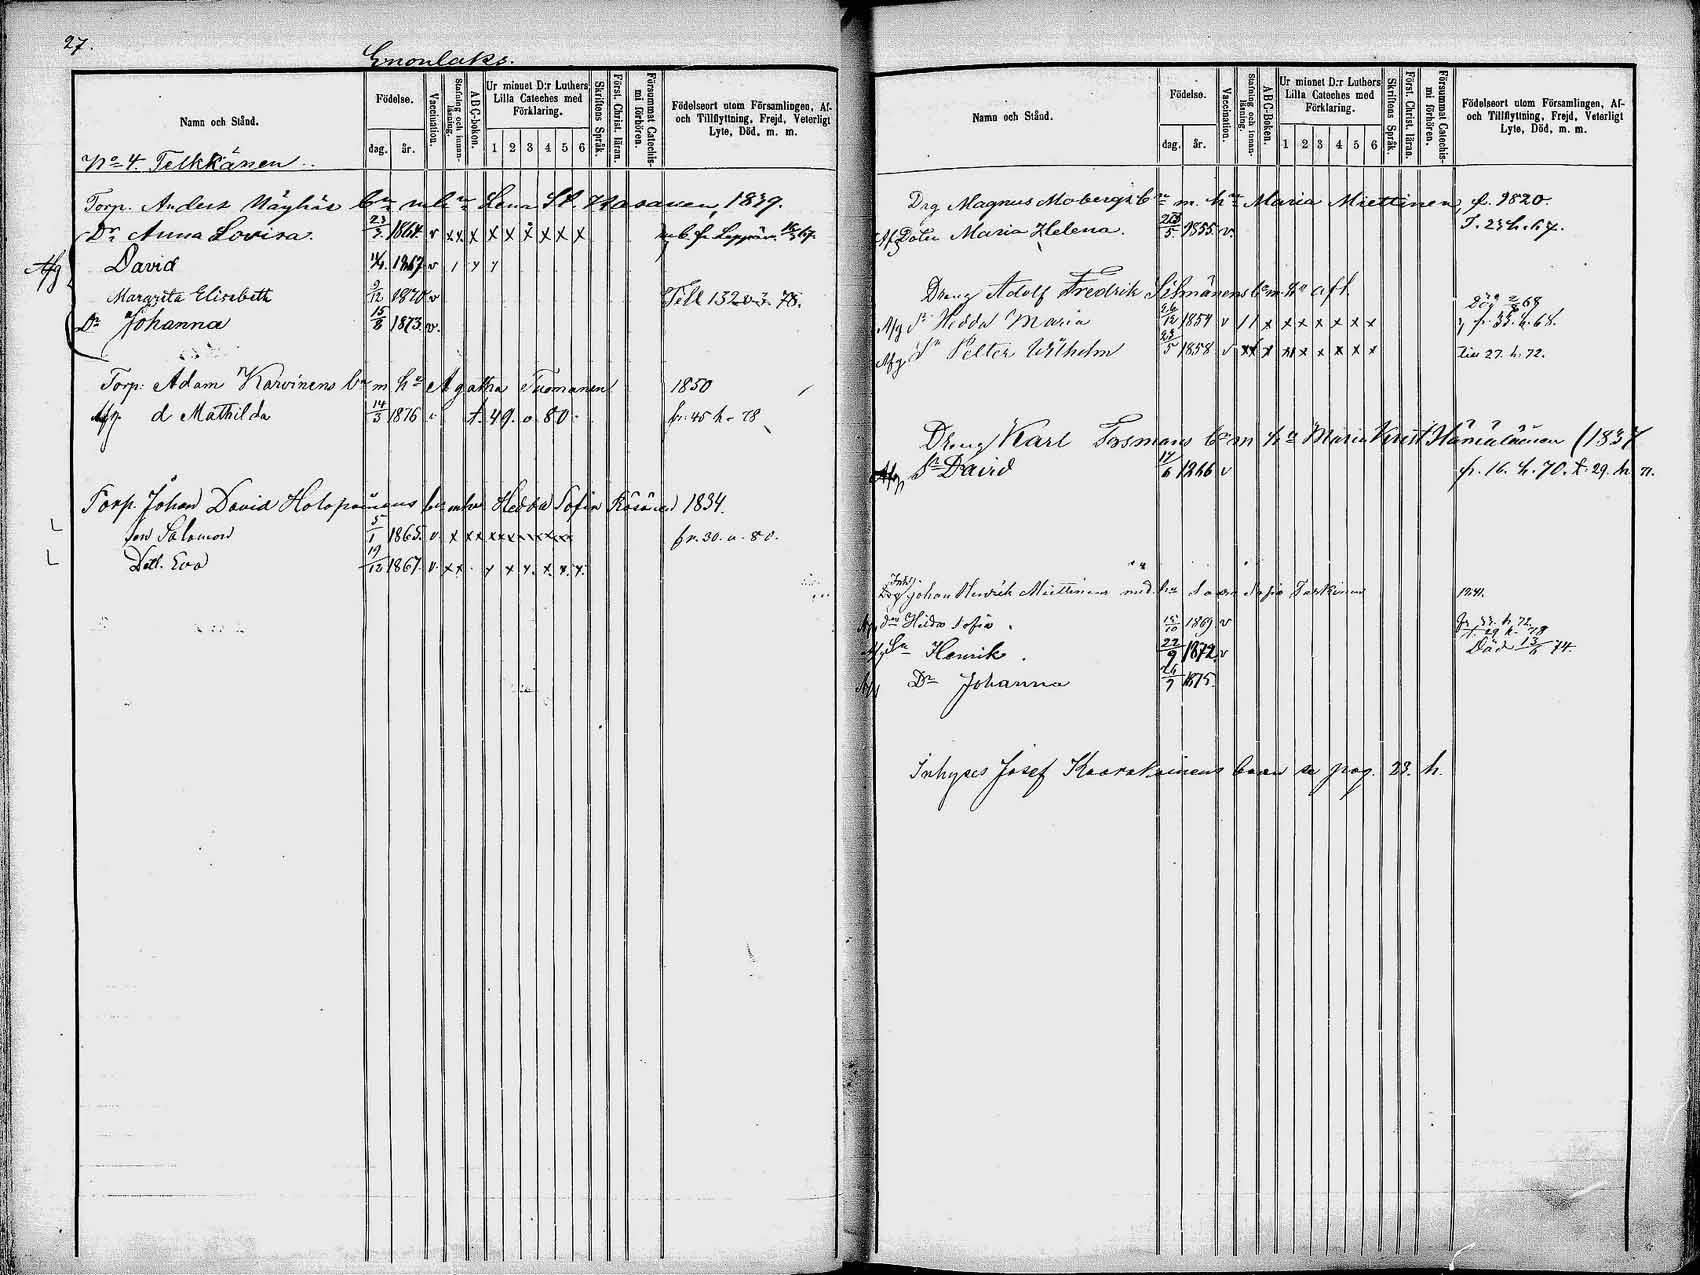 27.
Enonlaks.
Namn och Stånd.
Födelse.
dag.
år.
Vaccination.
Stafning och innanläsning.
ABC-boken.
Ur minnet D:r Luthers Lilla Cateches med Förklaring.
1 2 3 4 5 6
Skriftens Språk.
Först. Christ. läran.
Försummat Catechismi förhören.
Födelseort utom Församlingen, Af- och Tillflyttning, Frejd, Veterligt Lyte, Död, m. m.
No 4. Telkkänen
Torp. Anders Väyhäs bn m hu Lena St. Kasanen, 1839.
Dr Anna Lovisa. 23/2 1864 v xx x x x x x x x
Afg David 14/4 1867 v
Margreta Elisabeth 9/12 1870 v Till 132 v 3. 78.
Dr Johanna 15/8 1873 v.
Torp. Adam Karvinens bn m hu Agatha Tuomanen 1850
Afg d Mathilda 14/3 1876 v t. 49. o 80. fr. 45 h. 78
Torp. Johan David Holopainens bn m hu Hedda Sofia Räsänen 1834.
son Salomon 5/1 1865. v. x xx fr. 30. v. 80.
Dott. Eva 19/12 1867. v. xx. x x x. x. x. x.
Namn och Stånd.
Födelse.
dag.
år.
Vaccination.
Stafning och innanläsning.
ABC-Boken.
Ur minnet D:r Luthers Lilla Cateches med Förklaring.
1 2 3 4 5 6
Skriftens Språk.
Först. Christ. läran.
Försummat Catechismi förhören.
Födelseort utom Församlingen, Af- och Tillflyttning, Frejd, Veterligt Lyte, Död, m. m.
Drg Magnus Mobergs bn m. hu Maria Miettinen, f. 1820.
Afg Doter Maria Helena. 5. 1855 v. T. 23 h. 67.
Dreng Adolf Fredrik Sihvonens bn m. hu afl.
Afg Dr Hedda Maria 12 1854 v 11 x x x x x x x fr 33. h. 68.
Afg Sn Petter Wilhelm 23/5 1858 v x x x x x x x 27. h. 72.
Dreng Karl Tasmans bn m hu Maria Krist Hämäläinen (1837
Afg Sn David 17/6 1866 v fr. 16. h. 70. t. 29. h 71.
Inh. Johan Henrik Miettinens med hu Sofia 1841.
Afg Dr Hilda Sofia. 15/10 1869 v h. 72 t. 29 h. 78
Afg Sn Henrik. 22/9 1872. v Död 13/6 74.
Afg Dr Johanna 26/9 1875.
Inhyses Josef Kaarakainens barn se pag. 23. h.